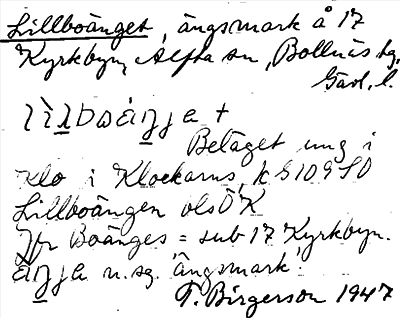 Lillboänget, ängsmark å 17
Kyrkbyn, Alfta sn, Bollnäs tg,
Gävl. l.
Beläget ung i
klo i Klockarns, k S 109 SO
Lillboängen olsÖK
Jfr Boänges = sub 17 Kyrkbyn.
n. sg. 'ängsmark'.
T. Birgerson 1947